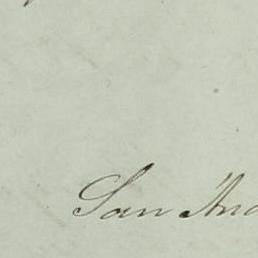 San An